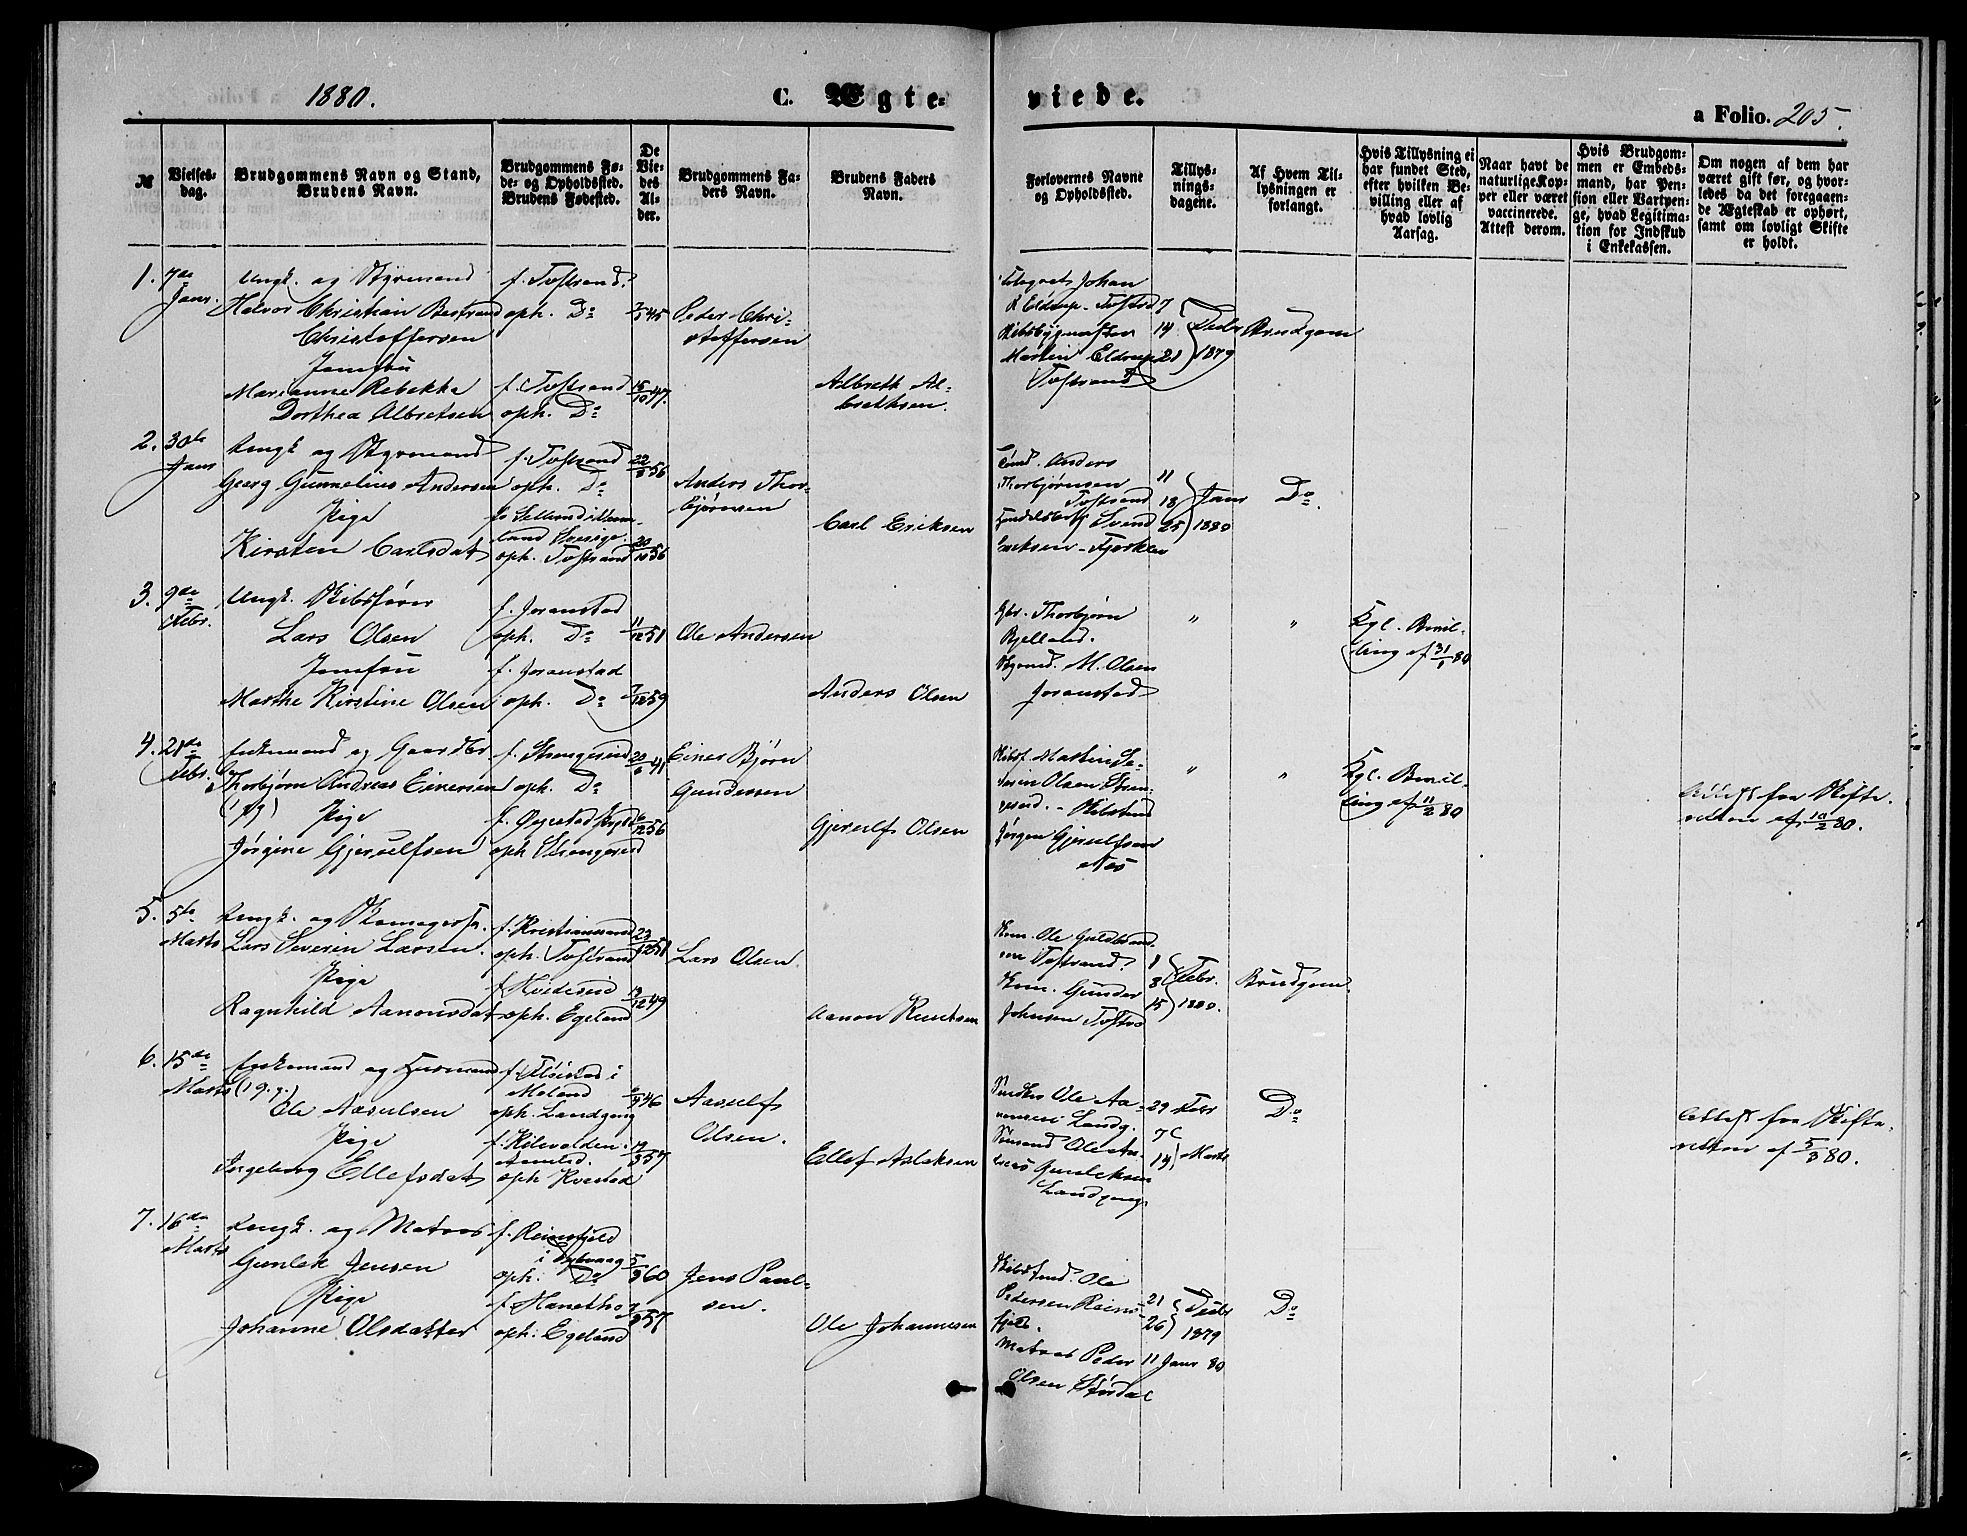 1880.
C. Ægte-
viede.
a Folio. 205.
№
Vielses-
dag.
Brudgommens Navn og Stand,
Brudens Navn.
Brudgommens Fø-
de- og Opholdssted.
Brudens Fødested.
De
Vie-
des
Al-
der.
Brudgommens Fa-
ders Navn.
Brudens Faders
Navn.
Forlovernes Navne
og Opholdssted.
Tillys-
nings-
dagene.
Af Hvem Til-
lysningen er
forlangt.
Hvis Tillysning ei
har fundet Sted,
efter hvilken Be-
villing eller af
hvad lovlig
Aarsag.
Naar havt de
naturlige Kop-
per eller været
vaccinerede.
Attest derom.
Hvis Brudgom-
men er Embeds-
mand, har Pen-
sion eller Vartpen-
ge, hvad Legitima-
tion for Indskud
i Enkekassen.
Om nogen af dem har
været gift før, og hvor-
ledes da det foregaaen-
de Ægteskab er ophørt,
samt om lovligt Skifte
er holdt.
1. 7de
Janr.
Ungk. og Styrmand
Halvor Christian Bestrand
Christoffersen
Jomfru
Marianne Rebekka
Dorthea Albretsen
f. Tostrand.
oph. Do
7/1 45
f. Tostrand
oph. Do
15/10 47.
Peder Chri-
stoffersen
Albreth Al-
brethsen.
Johan
Eldrup Tostrd 7
Skibsbygmester 14
Martin Eldrup 21
Tostrand
Decbr
1879
Brudgom
2. 30te
Janr
Ungk og Styrmand
Georg Gunnelius Andersen
Pige
Kirsten Carlsdat
f. Tostrand
oph. Do
22/8 56
land Sverige.
oph. Tostrand
20/10 56
Anders Thor-
bjørnsen
Carl Eriksen
Tømd. Anders
Thorbjørnsen 11
Tostrand 18
Svend 25
Eriksen - Fjerkleiv
Janr
1880
Do.
3. 9de
Febr.
Ungk. Skibsfører
Lars Olsen
Jomfru
Marthe Kirstine Olsen
f. Joranstad
oph. Do
11/12 51
f. Joranstad
oph. Do
7/12 59
Ole Andersen
Anders Olsen
Gbr. Thorbjørn
Bjelland.
Styrmd. M. Olsen
Joranstad
"
"
Kgl. Bevil-
ling af 31/1 80
4. 21de
Febr.
Enkemand og Gaardbr
Thorbjørn Andreas Einersen
(1 g g)
Pige
Jørgine Gjerulfsen
f. Strengereid
oph. Do
20/6 41
f. Øyestad
6/12 56
oph Strengereid
Einer Bjørn
Gundersen
Gjerulf Olsen
Skibsf. Martin Se-
verin Olsen Stren-
gereid. - Skibstmd
Jørgen Gjerulfsen
Næs
"
"
Kgl. Bevil-
ling af 11/2 80
Attest fra Skifte-
retten af 10/2 80.
5. 5te
Marts
Ungk. og Skomagersv.
Lars Severin Larsen.
Pige
Ragnhild Aanonsdat
f. Kristianssand
oph. Tostrand
23/12 51
f. Hvideseid
oph. Egeland
13/12 49
Lars Olsen.
Aanon Knutsen
Ole Guldbrand-
sen Tostrand. 1
Gunder 8
Johnsen Tostrd 15
Febr.
1880.
Brudgom.
6. 15de
Marts
Enkemand og Husmand
(1 g. g.)
Ole Aasulsen
Pige
Ingeborg Ellefsdat
f. Fløistad i
Moland
oph. Landgang
46
f. Kilevolden.
oph Kvastad
57
Aasulf
Olsen.
Ellef Aslaksen
Ole Aa-
nonsen Landg.
29 Febr
7
14
Marts
Landgang
Do
Attest fra Skifte-
retten af 5/3 80.
7. 16de
Marts
Ungk. og Matros
Gunlek Jensen
Pige
Johanne Olsdatter
f. Reinsfjeld
i Dybvaag
oph: Do
5/9 60
oph: Egeland
57
Jens Paul-
sen.
Ole Johannesen
Ole
Pedersen Reins-
fjeld.
Matros Peder
Olsen
21
26
Decbr
1879
11 Janr 80
Do